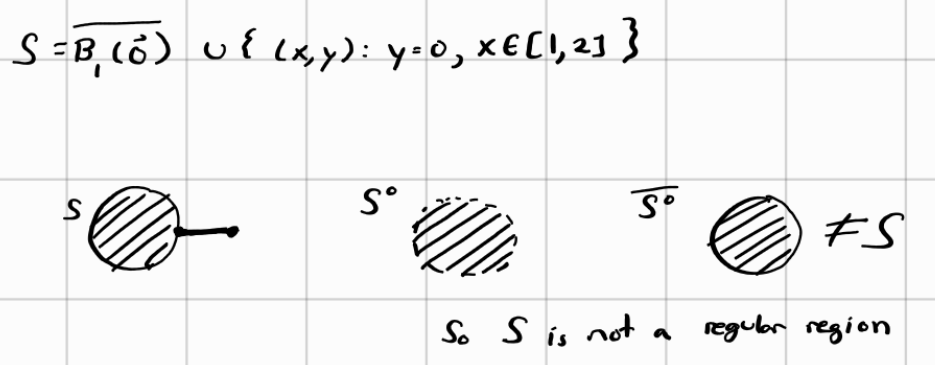 S = \overline{B_1(\vec{0})} ∪ { (x,y): y=0, x∈[1,2] }
S S° \overline{S°} ≠ S
So S is not a regular region